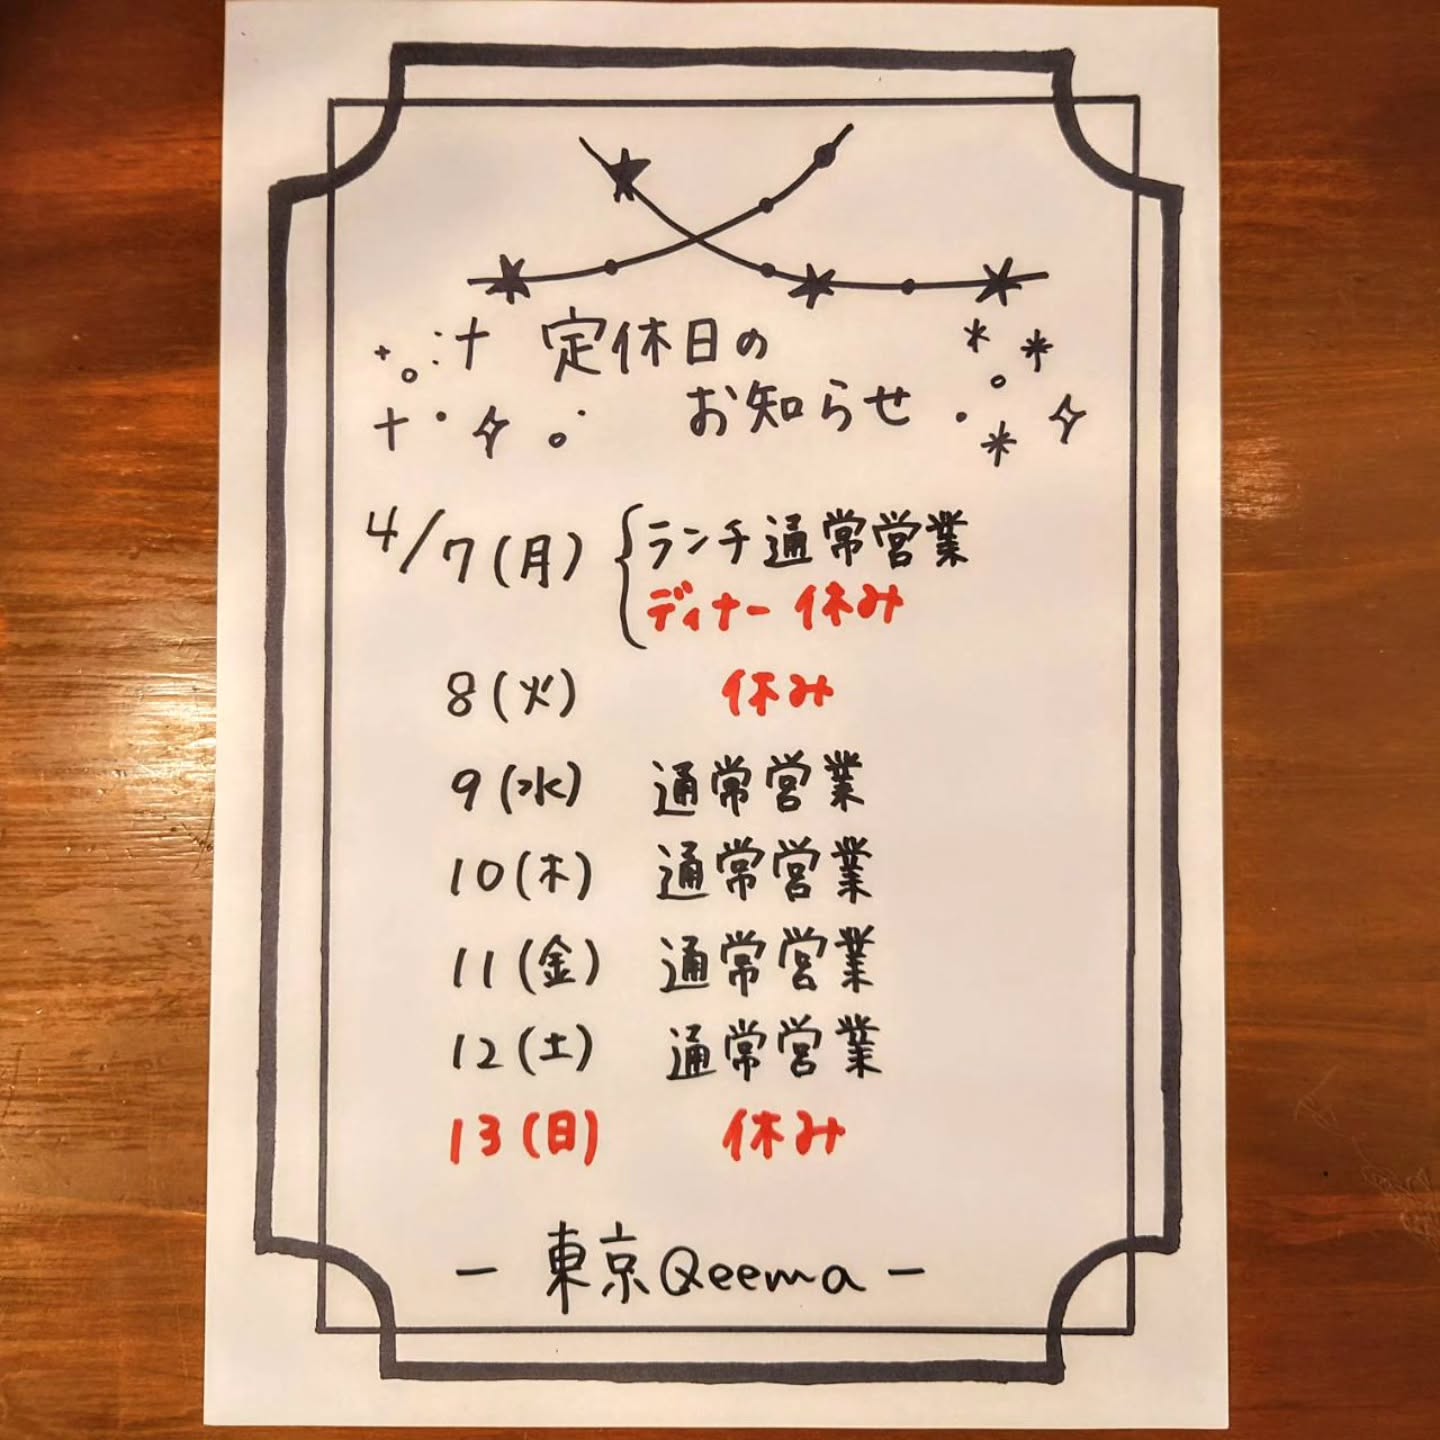 定休日の
お知らせ
4/7(月) ランチ通常営業
ディナー 休み
8(火) 休み
9(水) 通常営業
10(木) 通常営業
11(金) 通常営業
12(土) 通常営業
13(日) 休み
- 東京Qeema -